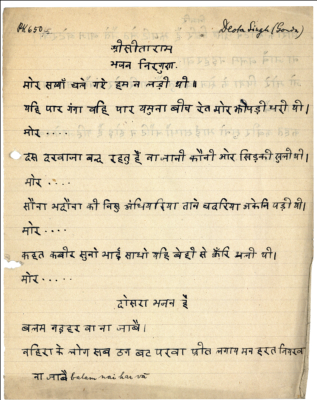 PK650
Deota Singh (Gowda)
श्रीसीताराम
भजन निरगुण
मोर सबाँ चले गरे हम न लड़ी थी॥
यहि पार गंगा वहि पार यमुना बीच रेत मोर झोपड़ी परी थी।
मोर ....
दस दरवाजा बन्द रहतु हैं ना जानी कौनी ओर खिड़की खुली थी।
मोर ....
सौना भदौना की निसु अंधियरिया ताने चदरिया अकेलि पड़ी थी।
मोर ....
कहत कबीर सुनो भाई साधो यहि बेही से
मोर .....
दोसरा भजन है
बलम नइहर वा ना जाबै।
नहिरा के लोग सब ठग बट परवा प्रीत लगाय मन हरत
ना जाबै balam nai har vā